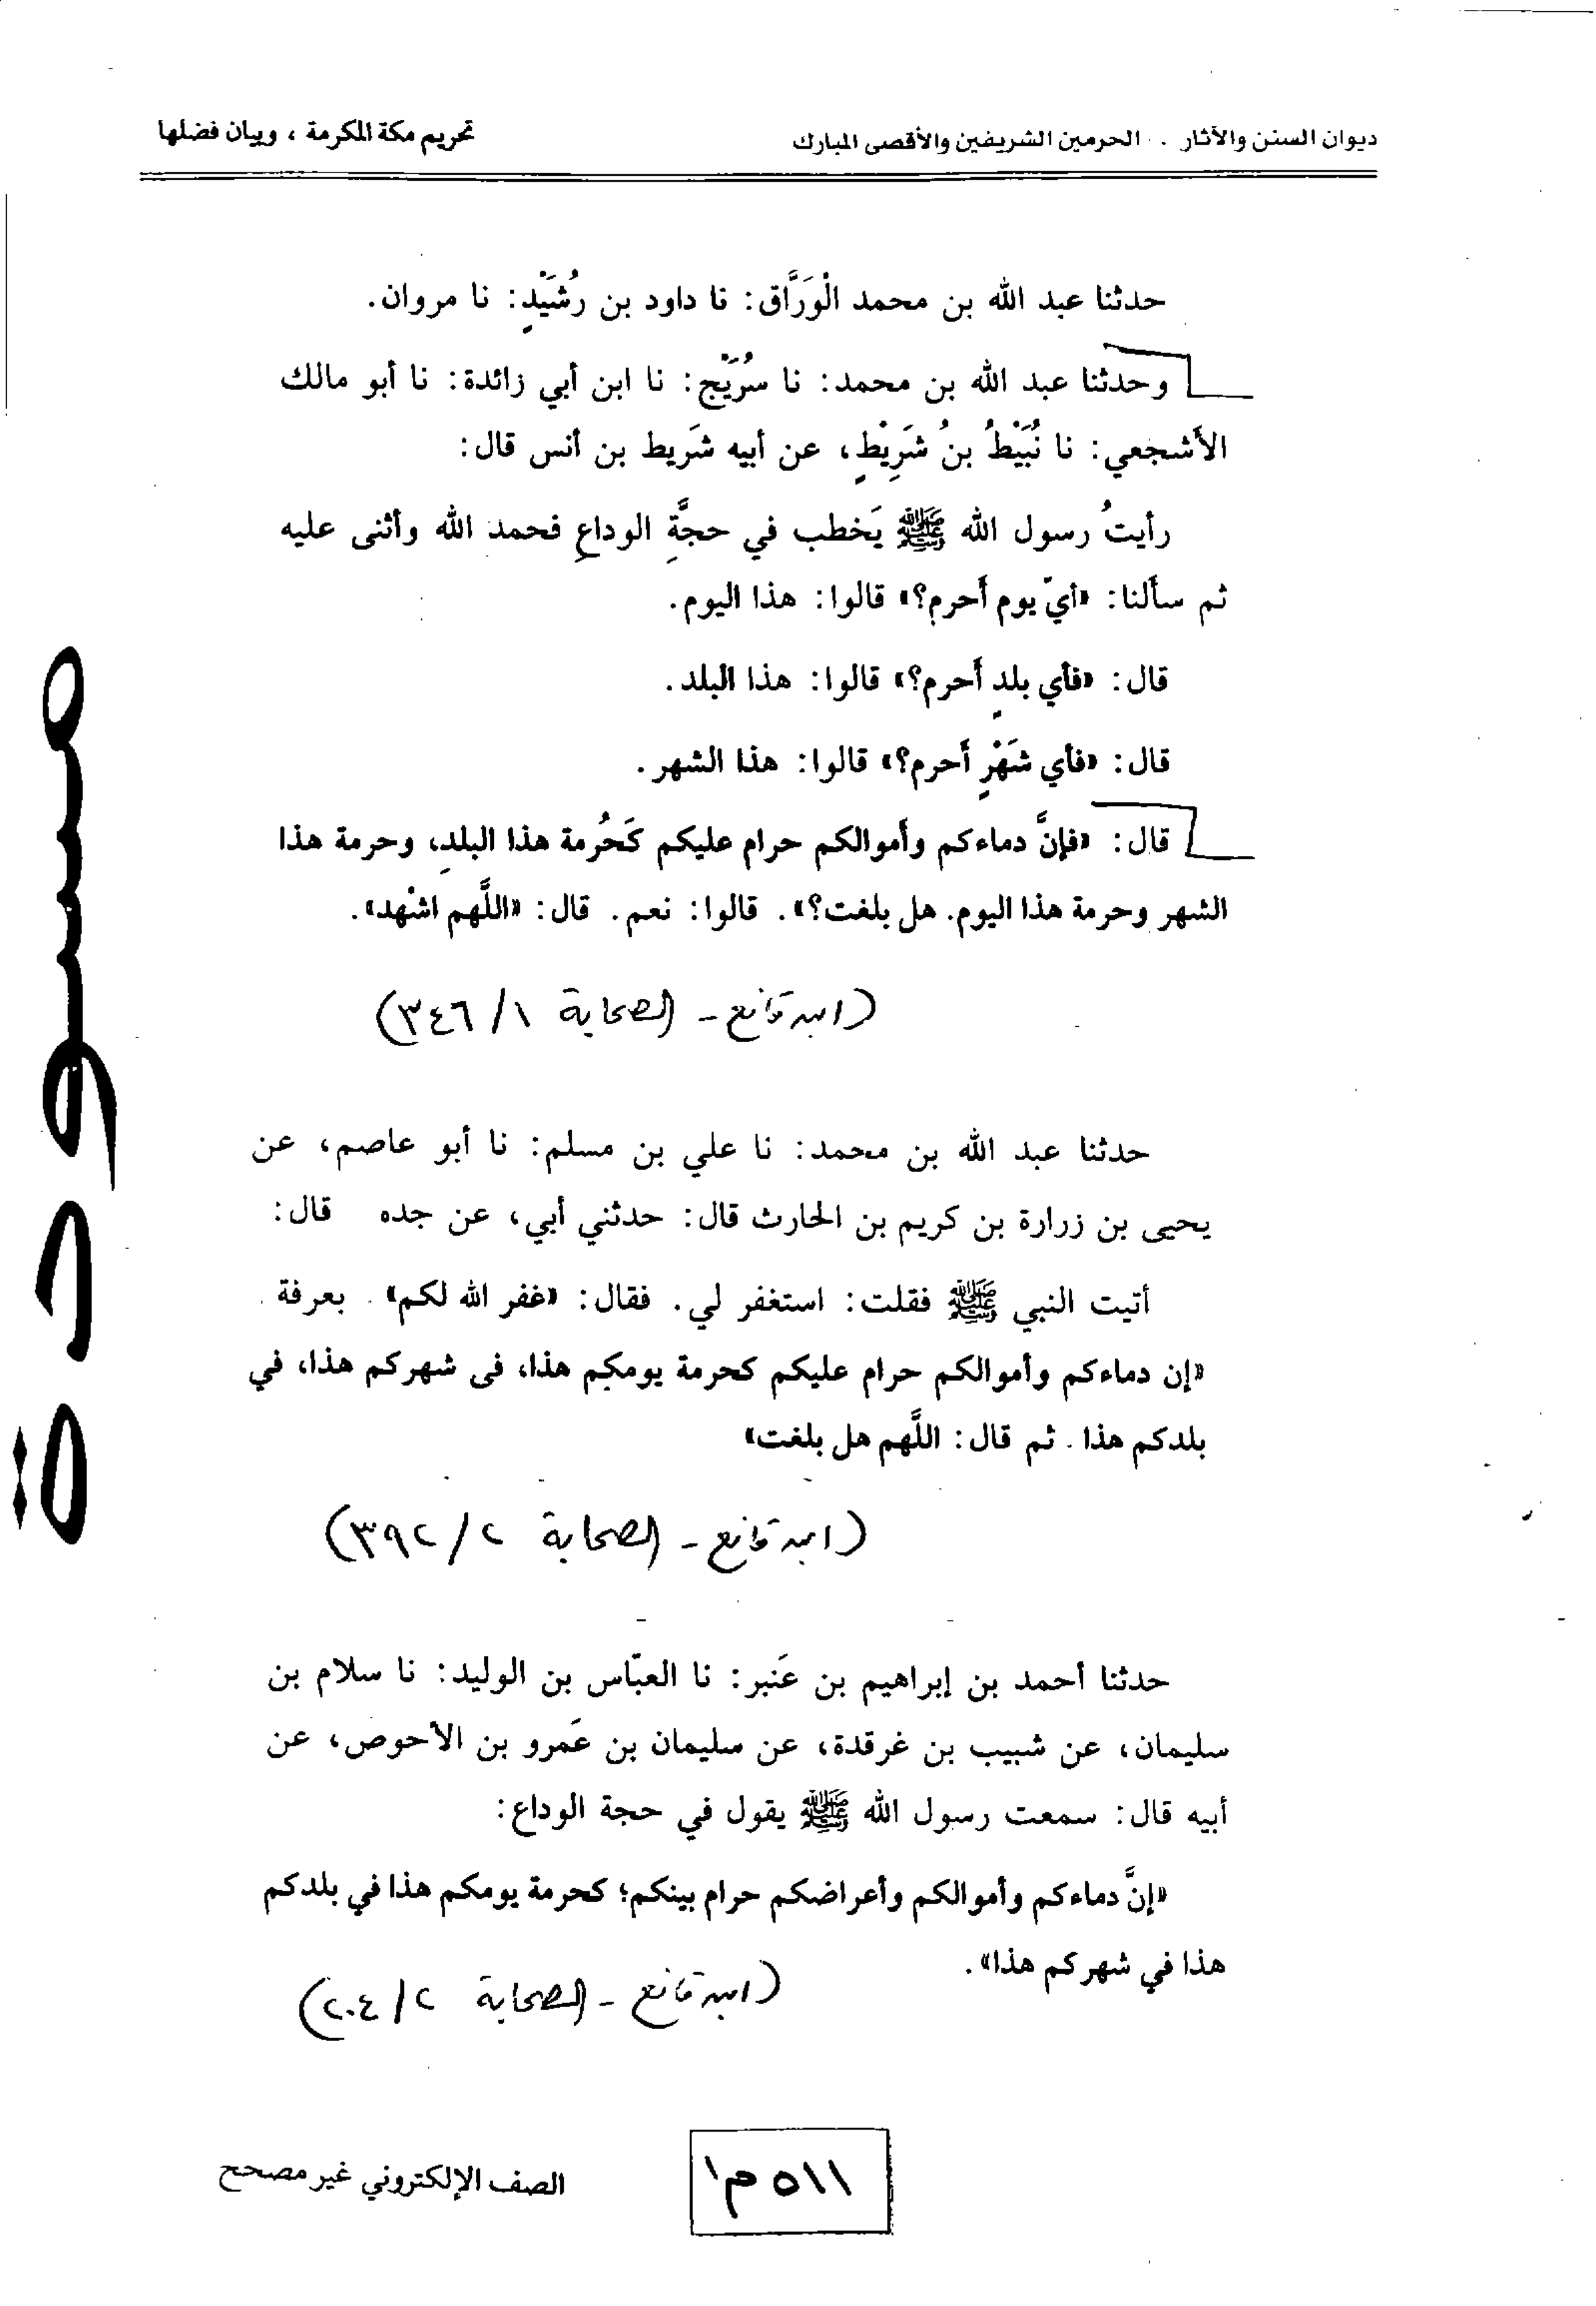 ديوان السنن والآثار . . الحرمين الشريفين والأقصى المبارك
تحريم مكة المكرمة ، وبيان فضلها
حدثنا عبد الله بن محمد الْوَرَّاق: نا داود بن رُشَيْدٍ: نا مروان.
وحدثنا عبد الله بن محمد: نا سُرَيْج: نا ابن أبي زائدة: نا أبو مالك
الأشجعي: نا نُبَيْطُ بنُ شَرِيْطٍ، عن أبيه شَريط بن أنس قال:
رأيتُ رسول الله ﷺ يَخطب في حجَّةِ الوداعِ فحمد الله وأثنى عليه
ثم سألنا: «أيّ يوم أَحرم؟» قالوا: هذا اليوم.
قال: «فأي بلدٍ أَحرم؟» قالوا: هذا البلد.
قال: «فأي شَهْرٍ أَحرم؟» قالوا: هذا الشهر.
قال: «فإنَّ دماءكم وأموالكم حرام عليكم كَحُرمة هذا البلدِ، وحرمة هذا
الشهر وحرمة هذا اليوم. هل بلغت؟». قالوا: نعم. قال: «اللَّهم اشْهد».
(ابن قانع - الصحابة ١/٣٤٦)
حدثنا عبد الله بن محمد: نا علي بن مسلم: نا أبو عاصم، عن
يحيى بن زرارة بن كريم بن الحارث قال: حدثني أبي، عن جده قال:
أتيت النبي ﷺ فقلت: استغفر لي. فقال: «غفر الله لكم». بعرفة
«إن دماءكم وأموالكم حرام عليكم كحرمة يومكم هذا، فى شهركم هذا، في
بلدكم هذا. ثم قال: اللَّهم هل بلغت»
(ابن قانع - الصحابة ٢/٣٩٢)
حدثنا أحمد بن إبراهيم بن عَنبر: نا العبّاس بن الوليد: نا سلام بن
سليمان، عن شبيب بن غرقدة، عن سليمان بن عَمرو بن الأحوص، عن
أبيه قال: سمعت رسول الله ﷺ يقول في حجة الوداع:
«إنَّ دماءكم وأموالكم وأعراضكم حرام بينكم؛ كحرمة يومكم هذا في بلدكم
هذا في شهركم هذا».
(ابن قانع - الصحابة ٢/٢٠٤)
٥١١ م١
الصف الإلكتروني غير مصحح
مسودة